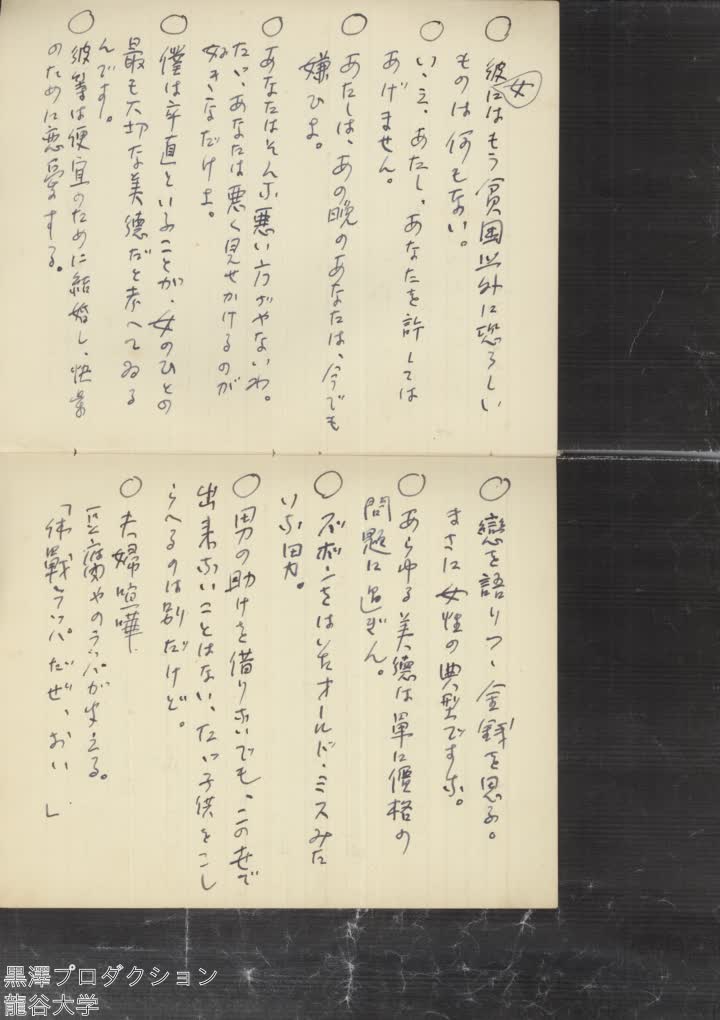 ○ 彼女にはもう貧困以外に恐ろしい
ものは何もない。
○ いゝえ、あたし、あなたを許しては
あげません。
○ あたしは、あの晩のあなたは、今でも
嫌ひよ。
○ あなたはそんな悪い方ぢやないわ。
たゞ、あなたは悪く見せかけるのが
好きなだけよ。
○ 僕は卒直といふことが、女のひとの
最も大切な美徳だと考へてゐる
んです。
○ 彼等は便宜のために結婚し、快楽
のために恋愛する。
○ 戀を語りつゝ金銭を思ふ。
まさに女性の典型ですな。
○ あらゆる美徳は単に價格の
問題に過ぎん。
○ ズボンをはいたオールド・ミスみた
いな男。
○ 男の助けを借りないでも、この世で
出来ないことはない、たゞ子供をこし
らへるのは別だけど。
○ 夫婦喧嘩.
豆腐やのラッパが聞える。
「休戦ラッパだぜ、おい」
黒澤プロダクション
龍谷大学